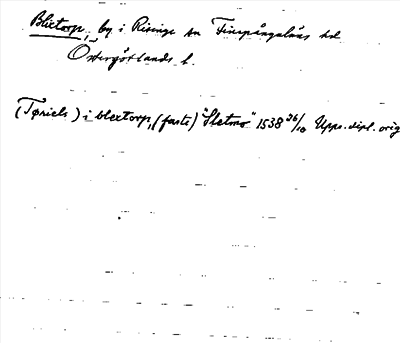 Blxtorp, by i Risinge sn Finspångaläns hd
Östergötlands l.
(Tøriels) i blextorp, (faste) "Sletmo" 1538 26/10 Upps. dipl. orig